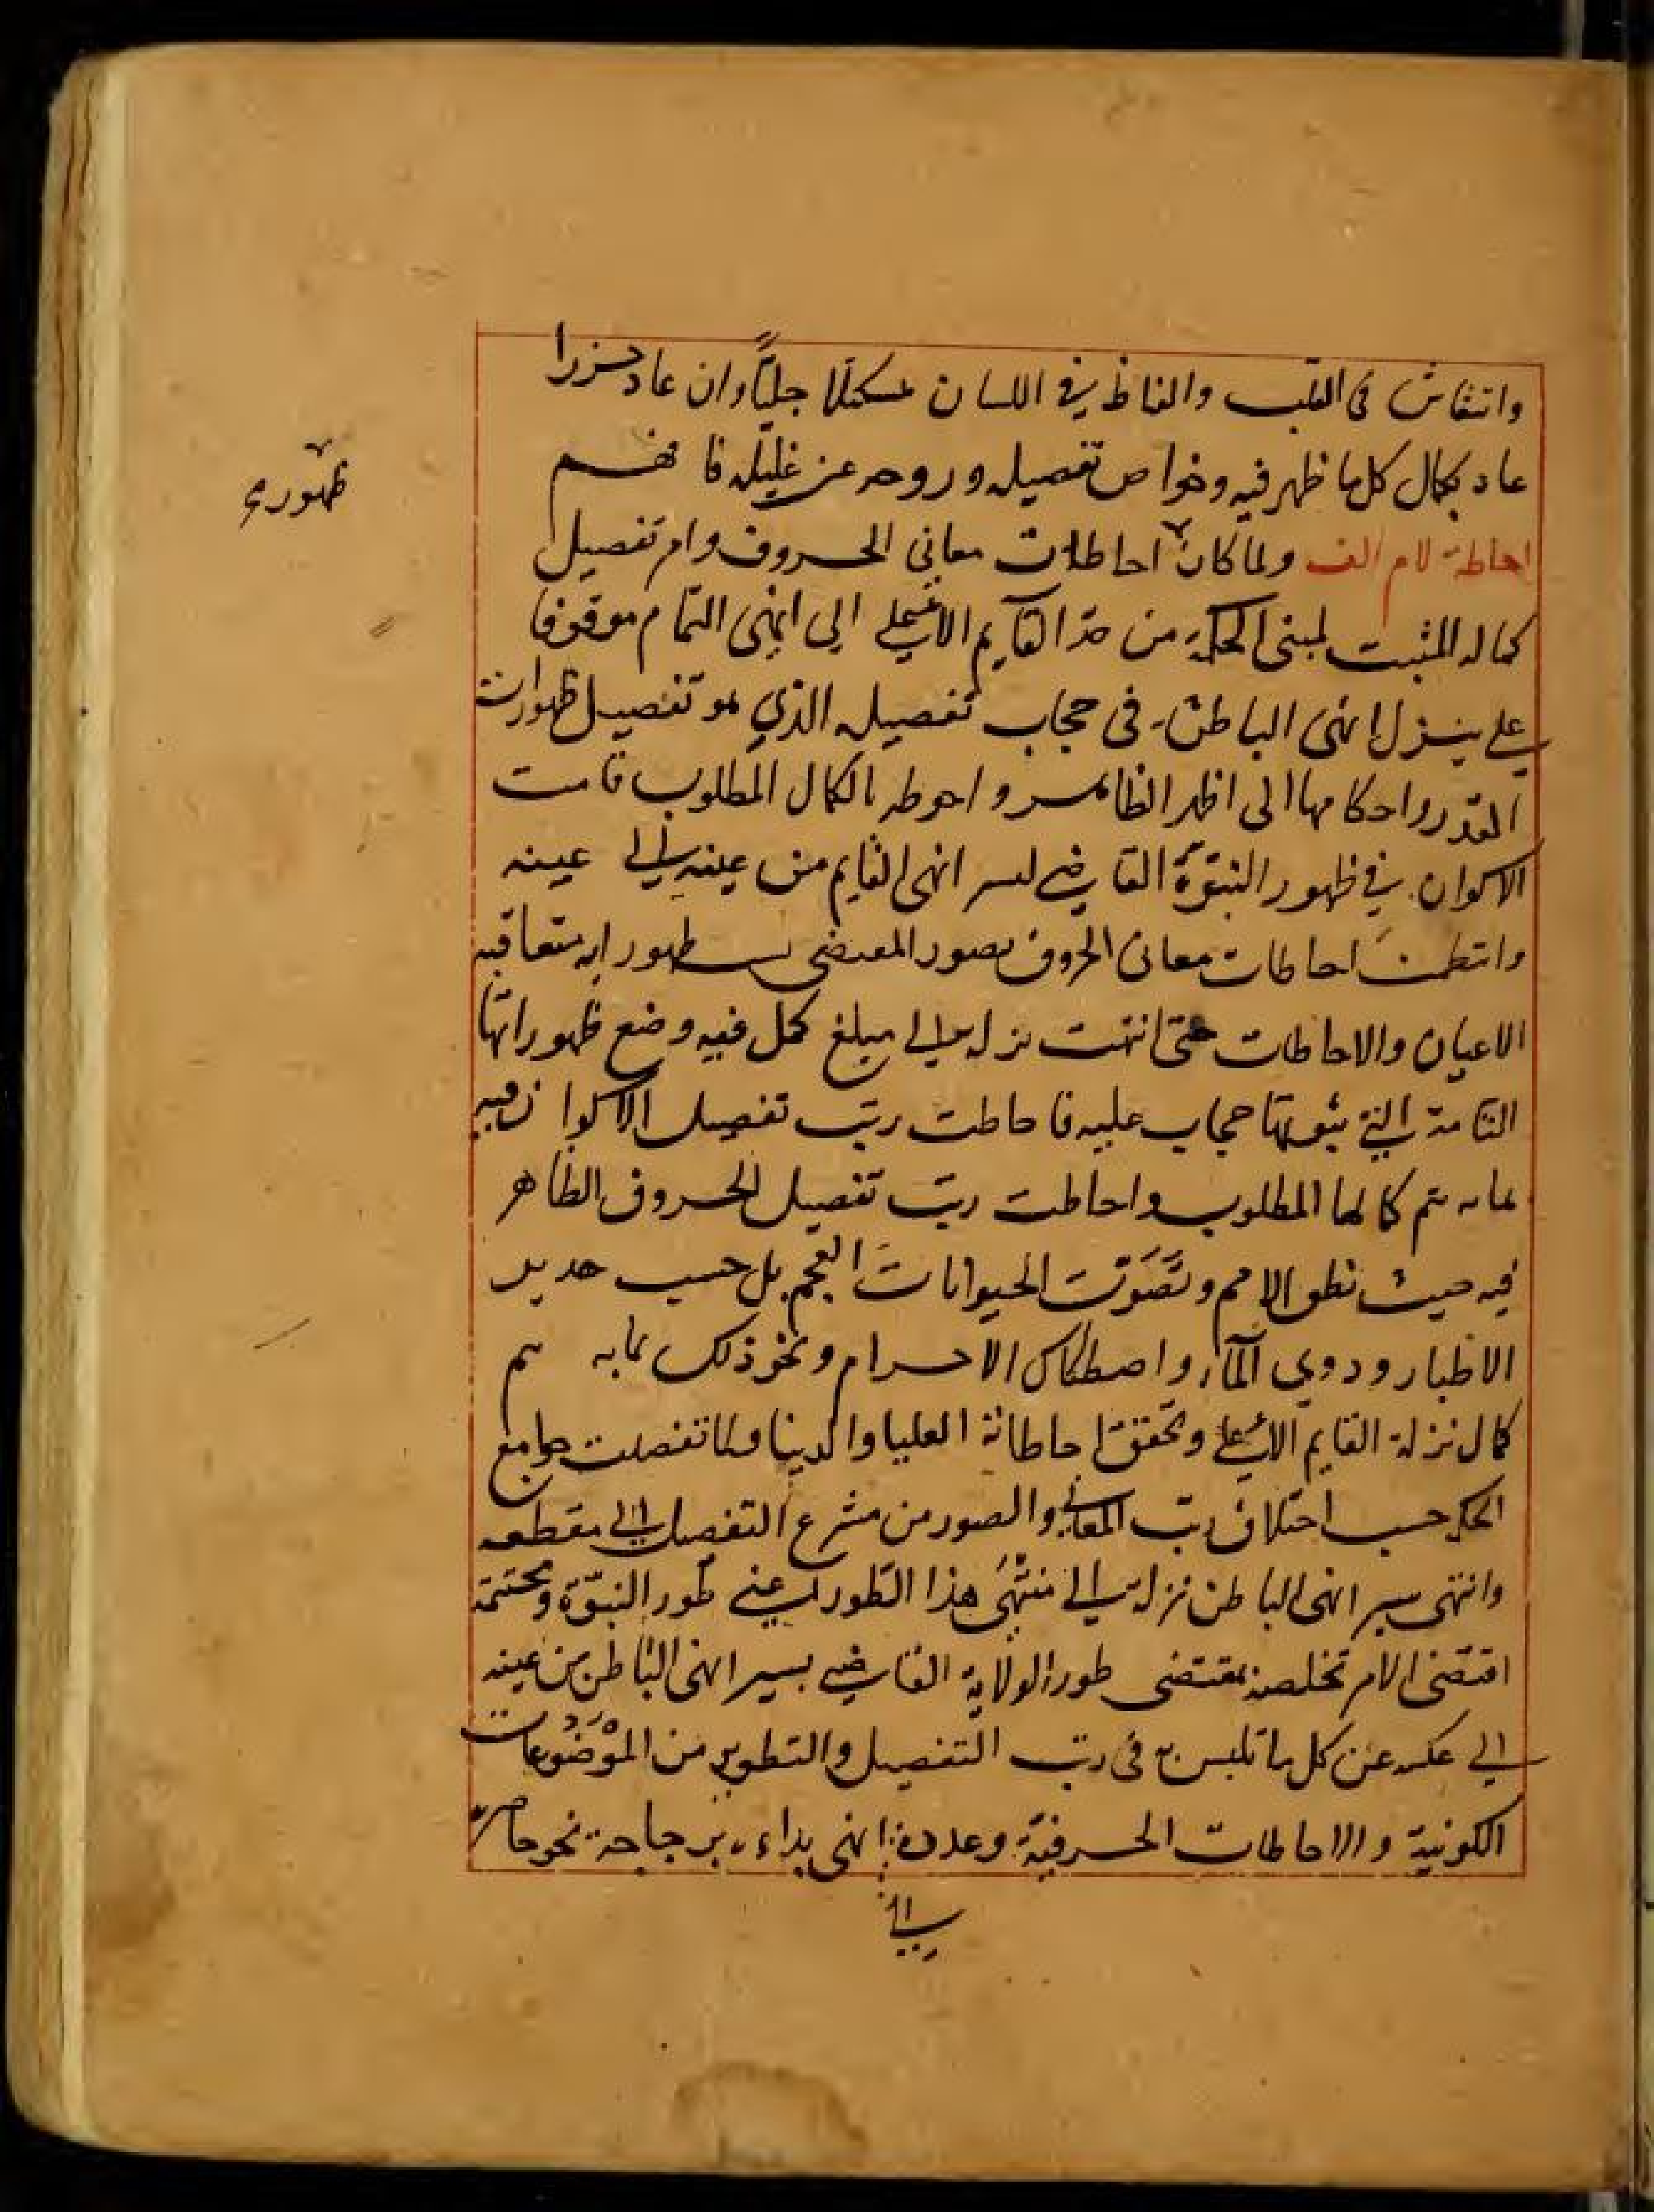 وانتقاش في القلب والفاظ في اللسان مستكملا جليًّا وان عاد حزرا
عاد بكمال كل ما ظهر فيه وخواص تفصيله وروحه عن غليله فافهم
ظهوري
احاطة لام الف ولما كان احاطات معاني الحروف وام تفصيل
كماله المثبت لمبنى الحكمة من حد القايم الاعلى الى انهى التمام موقوفا
على ينزل انهى الباطن في حجاب تفصيله الذي هو تفصيل ظهورات
القدر واحكامها الى اظهر الظاهر واحوطه بالكمال المطلوب قامت
الاكوان في ظهور النبوّة القاضي لسر انهى القايم من عينه الى عينه
وانتظمت احاطات معاني الحروف بصور المقتضى لسـ طهورايه متعاقبه
الاعيان والاحاطات حتى انتهت نزله الى مبلغ كمل فيه وضع ظهوراتها
التامة التي ثبوتها حجاب عليه فاحاطت رتب تفصيل الاكوان فيه
بما به تتم كمالها المطلوب واحاطت رتب تفصيل الحروف الظاهر
فيه حيث نطق الامم وتصوّت الحيوانات العجم بل حسب هدير
الاطيار ودوي المآء واصطكاك الاجرام ونحو ذلك مما به تم
كمال نزلة القايم الاعلى وتحقق احاطاته العليا والدنيا فلما تفصلت جوامع
الحكم حسب اختلاف رتب المعاني والصور من مشرع التفصيل الى مقطعه
وانتهى سير انهى الباطن نزله الى منتهى هذا التطور اعني طور النبوّة ومختمة
اقتضى الامر تخلصه بمقتضى طور الولاية القاضي بسير انهى الباطن من عينه
الى عكسه عن كل ما تلبس به في رتب التفصيل والتطوير من الموضوعات
الكونية والاحاطات الحرفية وعدده انهى بداءه برجاجة نحو حاصر
الى